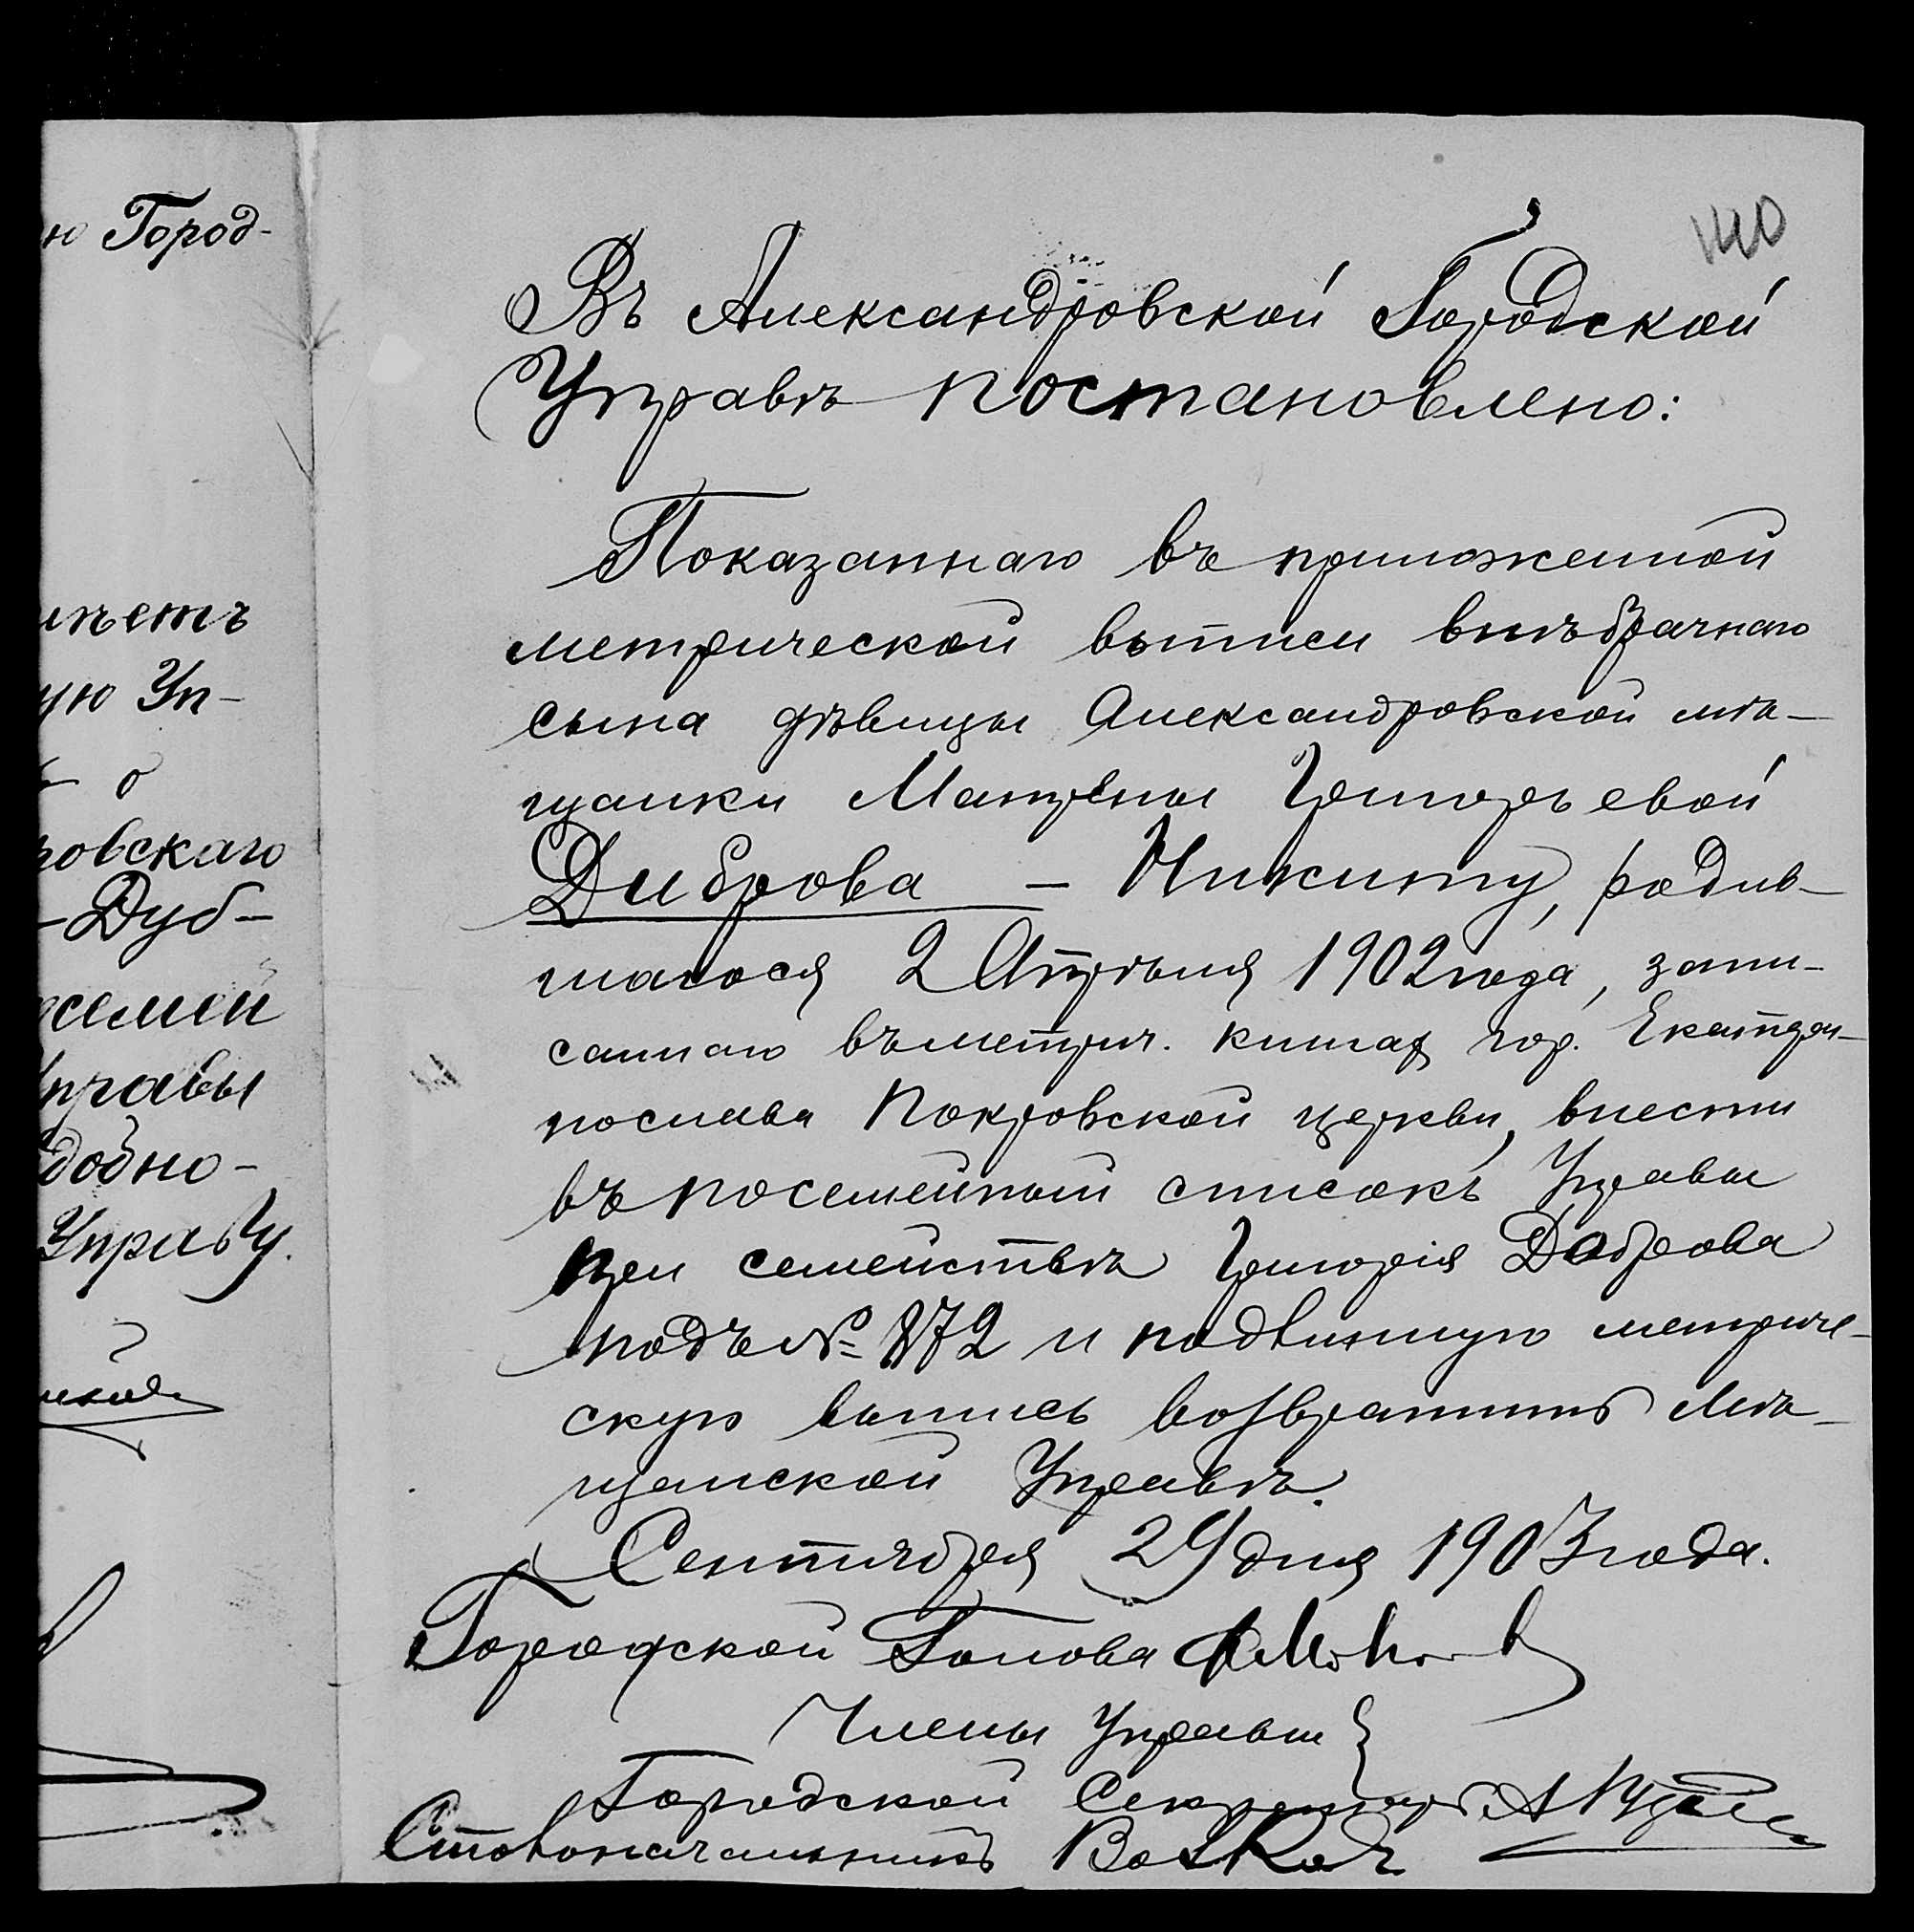 ю Город-
нѣетъ
ую Уп-
о
ровскаго
-Дуб-
семей
правы
добно-
Управу.
140
Въ Александровской Городской
Управѣ постановлено:
Показаннаго въ приложенной
метрической выписи внѣбрачнаго
сына дѣвицы Александровской мѣ-
щанки Матрены Григорьевой
Диброва - Никиту, родив-
шагося 2 Апрѣля 1902 года, запи-
саннаго въ метрич. книгах гор. Екатери-
нослава Покровской церкви, внести
въ посемейный списокъ Управы
при семействѣ Григорія Диброва
подъ № 872 и подлинную метриче-
скую выпись возвратить Мѣ-
щанской Управѣ.
Сентября 29 дня 1903 года.
Городской Голова
Члены Управы
Городской Секретарь
Столоначальникъ Волковъ